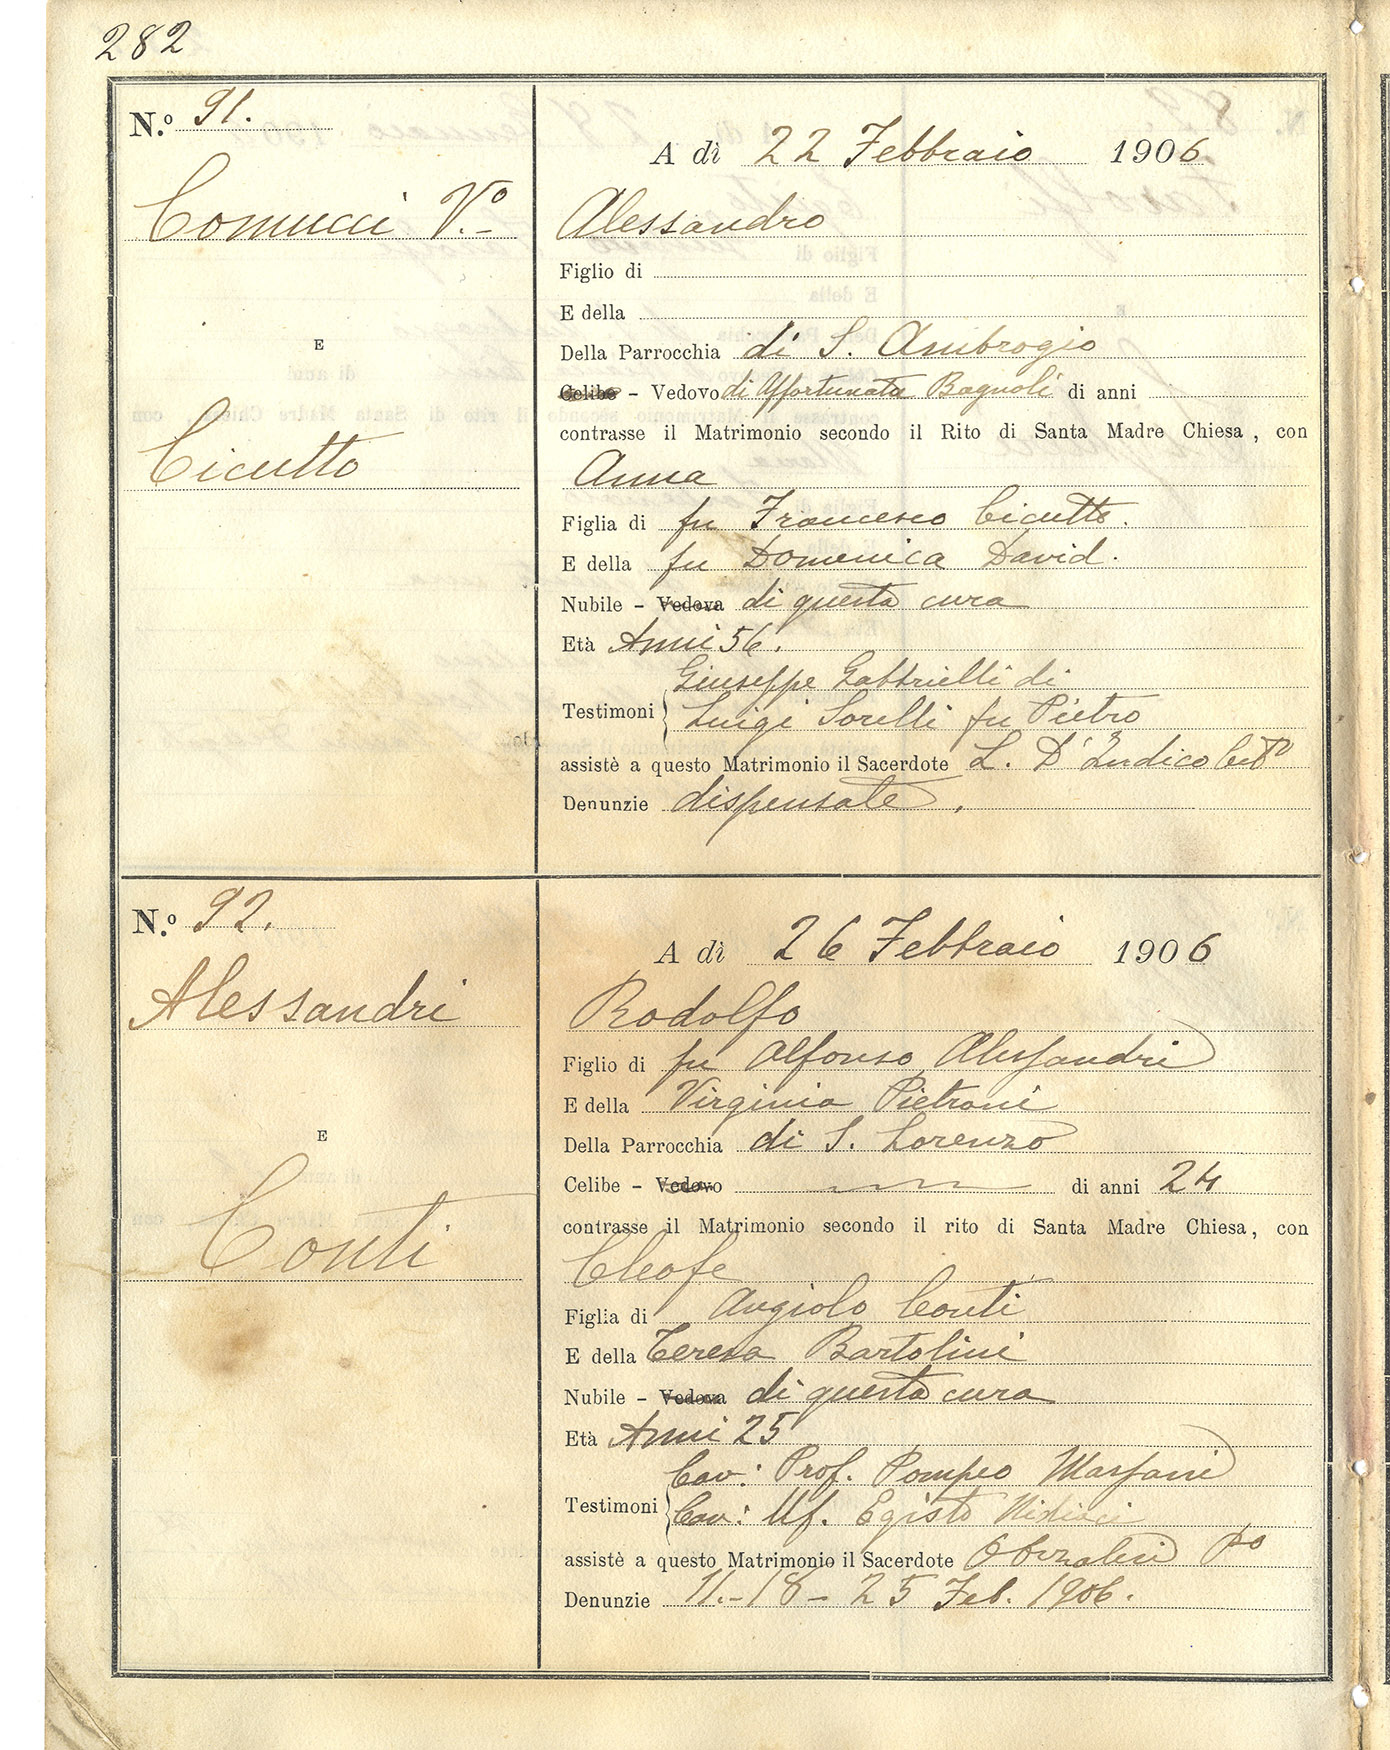 282
N.º 91.
A dì 22 Febbraio 1906
Comucci V.º
Alessandro
Figlio di
E della
E
Della Parrocchia di S. Ambrogio
Celibe - Vedovo di Affortunata Bagnoli di anni
contrasse il Matrimonio secondo il Rito di Santa Madre Chiesa, con
Cicutto
Anna
Figlia di fu Francesco Cicutto.
E della fu Domenica David.
Nubile - Vedova di questa cura
Età Anni 56.
Giuseppe Gabbrielli di
Testimoni
Luigi Sorelli fu Pietro
assistè a questo Matrimonio il Sacerdote L. D'Indico
Denunzie dispensate.
N.º 92.
A dì 26 Febbraio 1906
Alessandri
Rodolfo
Figlio di fu Alfonso Alessandri
E della Virginia Pietroni
E
Della Parrocchia di S. Lorenzo
Celibe - Vedovo di anni 24
contrasse il Matrimonio secondo il rito di Santa Madre Chiesa, con
Conti
Cleofe
Figlia di Angiolo Conti
E della Teresa Bartolini
Nubile - Vedova di questa cura
Età Anni 25
Cav: Prof. Pompeo
Testimoni
Cav: Uf. Egisto
assistè a questo Matrimonio il Sacerdote
Denunzie 11.-18-25 Feb. 1906.